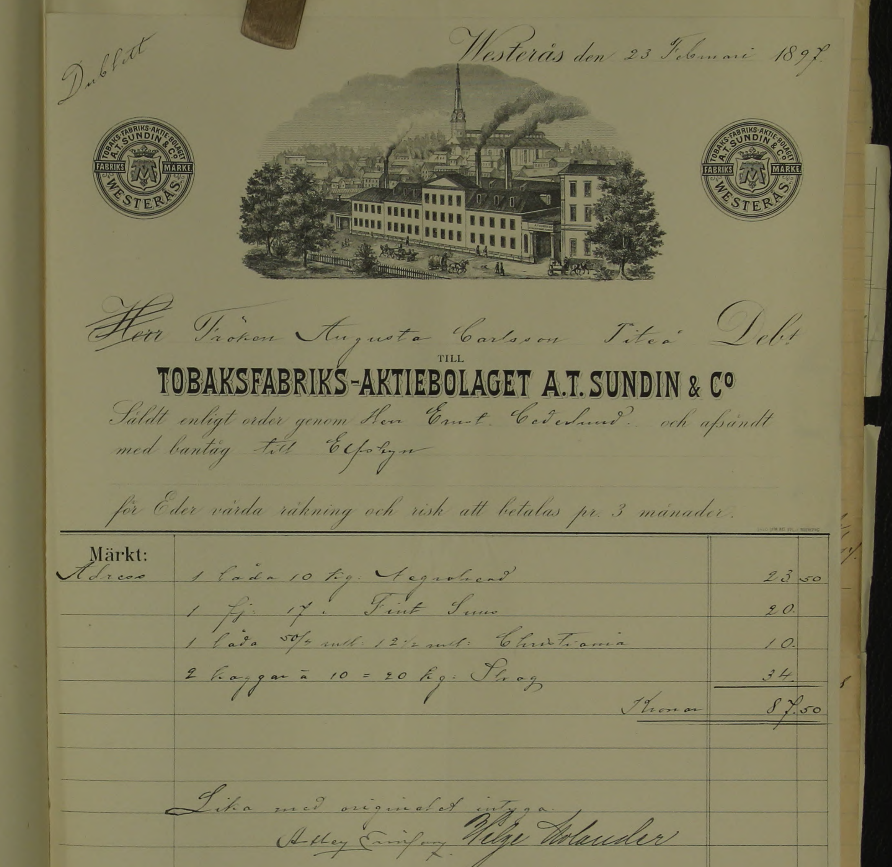 Dublett
Westerås den 23 Februari 1897.
TOBAKS-FABRIKS-AKTIE-BOLAGET
A.T. SUNDIN & Co
FABRIKS MÄRKE
WESTERÅS.
TOBAKS-FABRIKS-AKTIE-BOLAGET
A.T. SUNDIN & Co
FABRIKS MÄRKE
WESTERÅS.
Herr Fröken Augusta Carlsson Piteå Debt
TILL
TOBAKSFABRIKS-AKTIEBOLAGET A.T. SUNDIN & Co
Såldt enligt order genom Herr Ernst Cederlund och afsändt
med bantåg till Elfsbyn
för Eder värda räkning och risk att betalas pr. 3 månader.
Märkt:
Adress 1 låda 10 kg. Negrohead 23.50
1 fj. 17 Fint Snus 20.
1 låda 50/2 12½ Christiania 10.
2 kaggar à 10 = 20 kg. 34.
Kronor 87.50
Lika med originalet intyga
Helge Molander